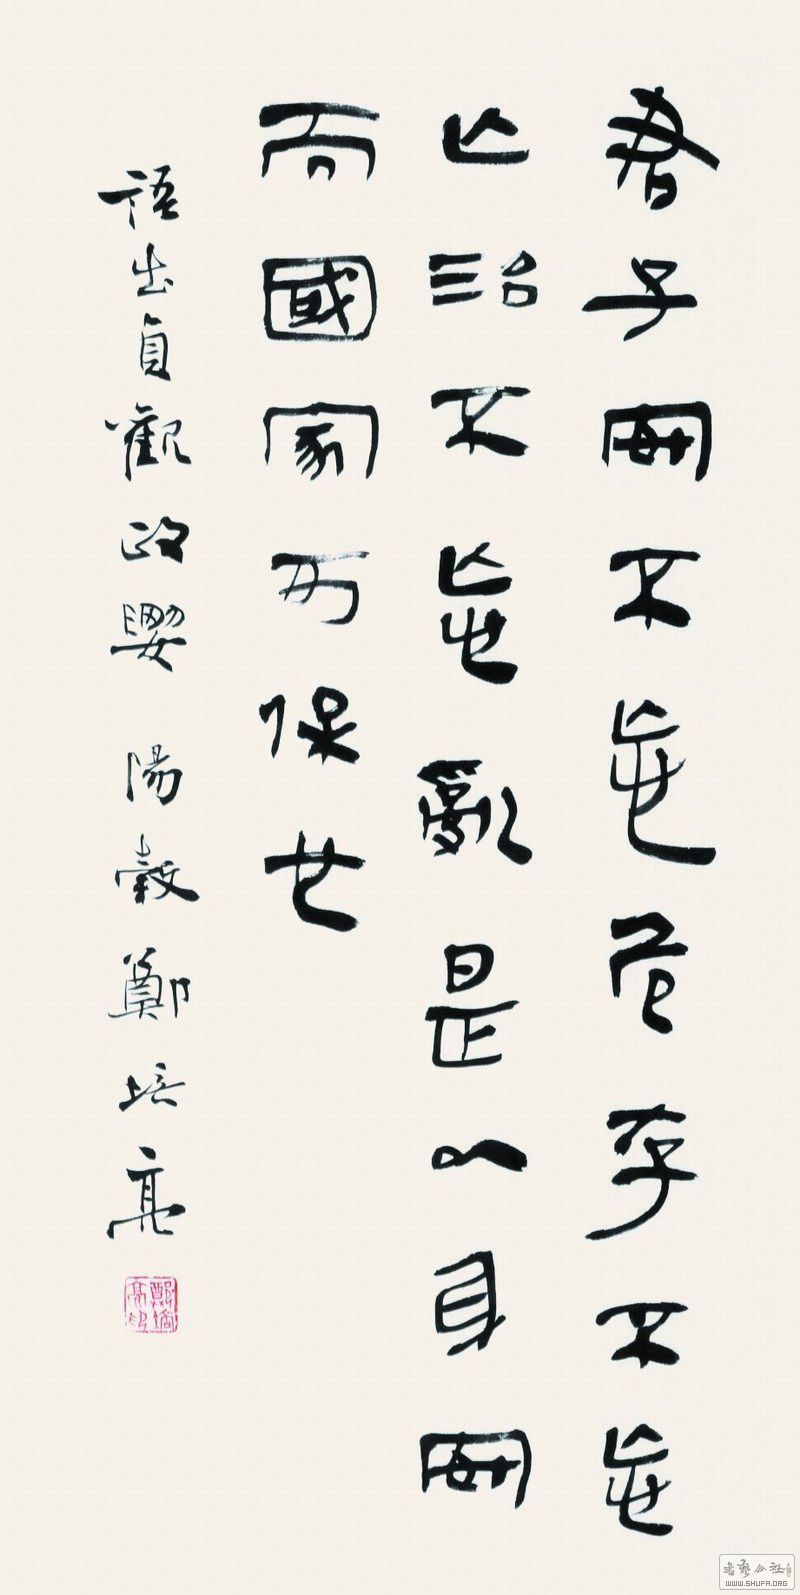 君子安不忘危存不忘
亡治不忘亂是以身安
而國家可保也
語出貞觀政要 陽穀鄭培亮
鄭培亮印
書藝公社
WWW.SHUFA.ORG